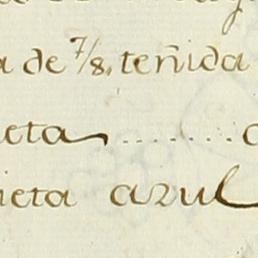 a de 7/8, teñida
eta ........ a
ieta azul